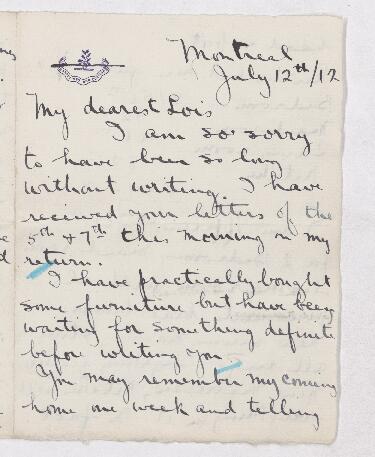 Montreal
July 12th/12
My dearest Lois
I am so sorry
to have been so long
without writing. I have
recieved your letters of the
5th & 7th this morning on my
return.
I have practically bought
some furniture but have been
waiting for something definite
before writing you.
You may remember my coming
home one week and telling